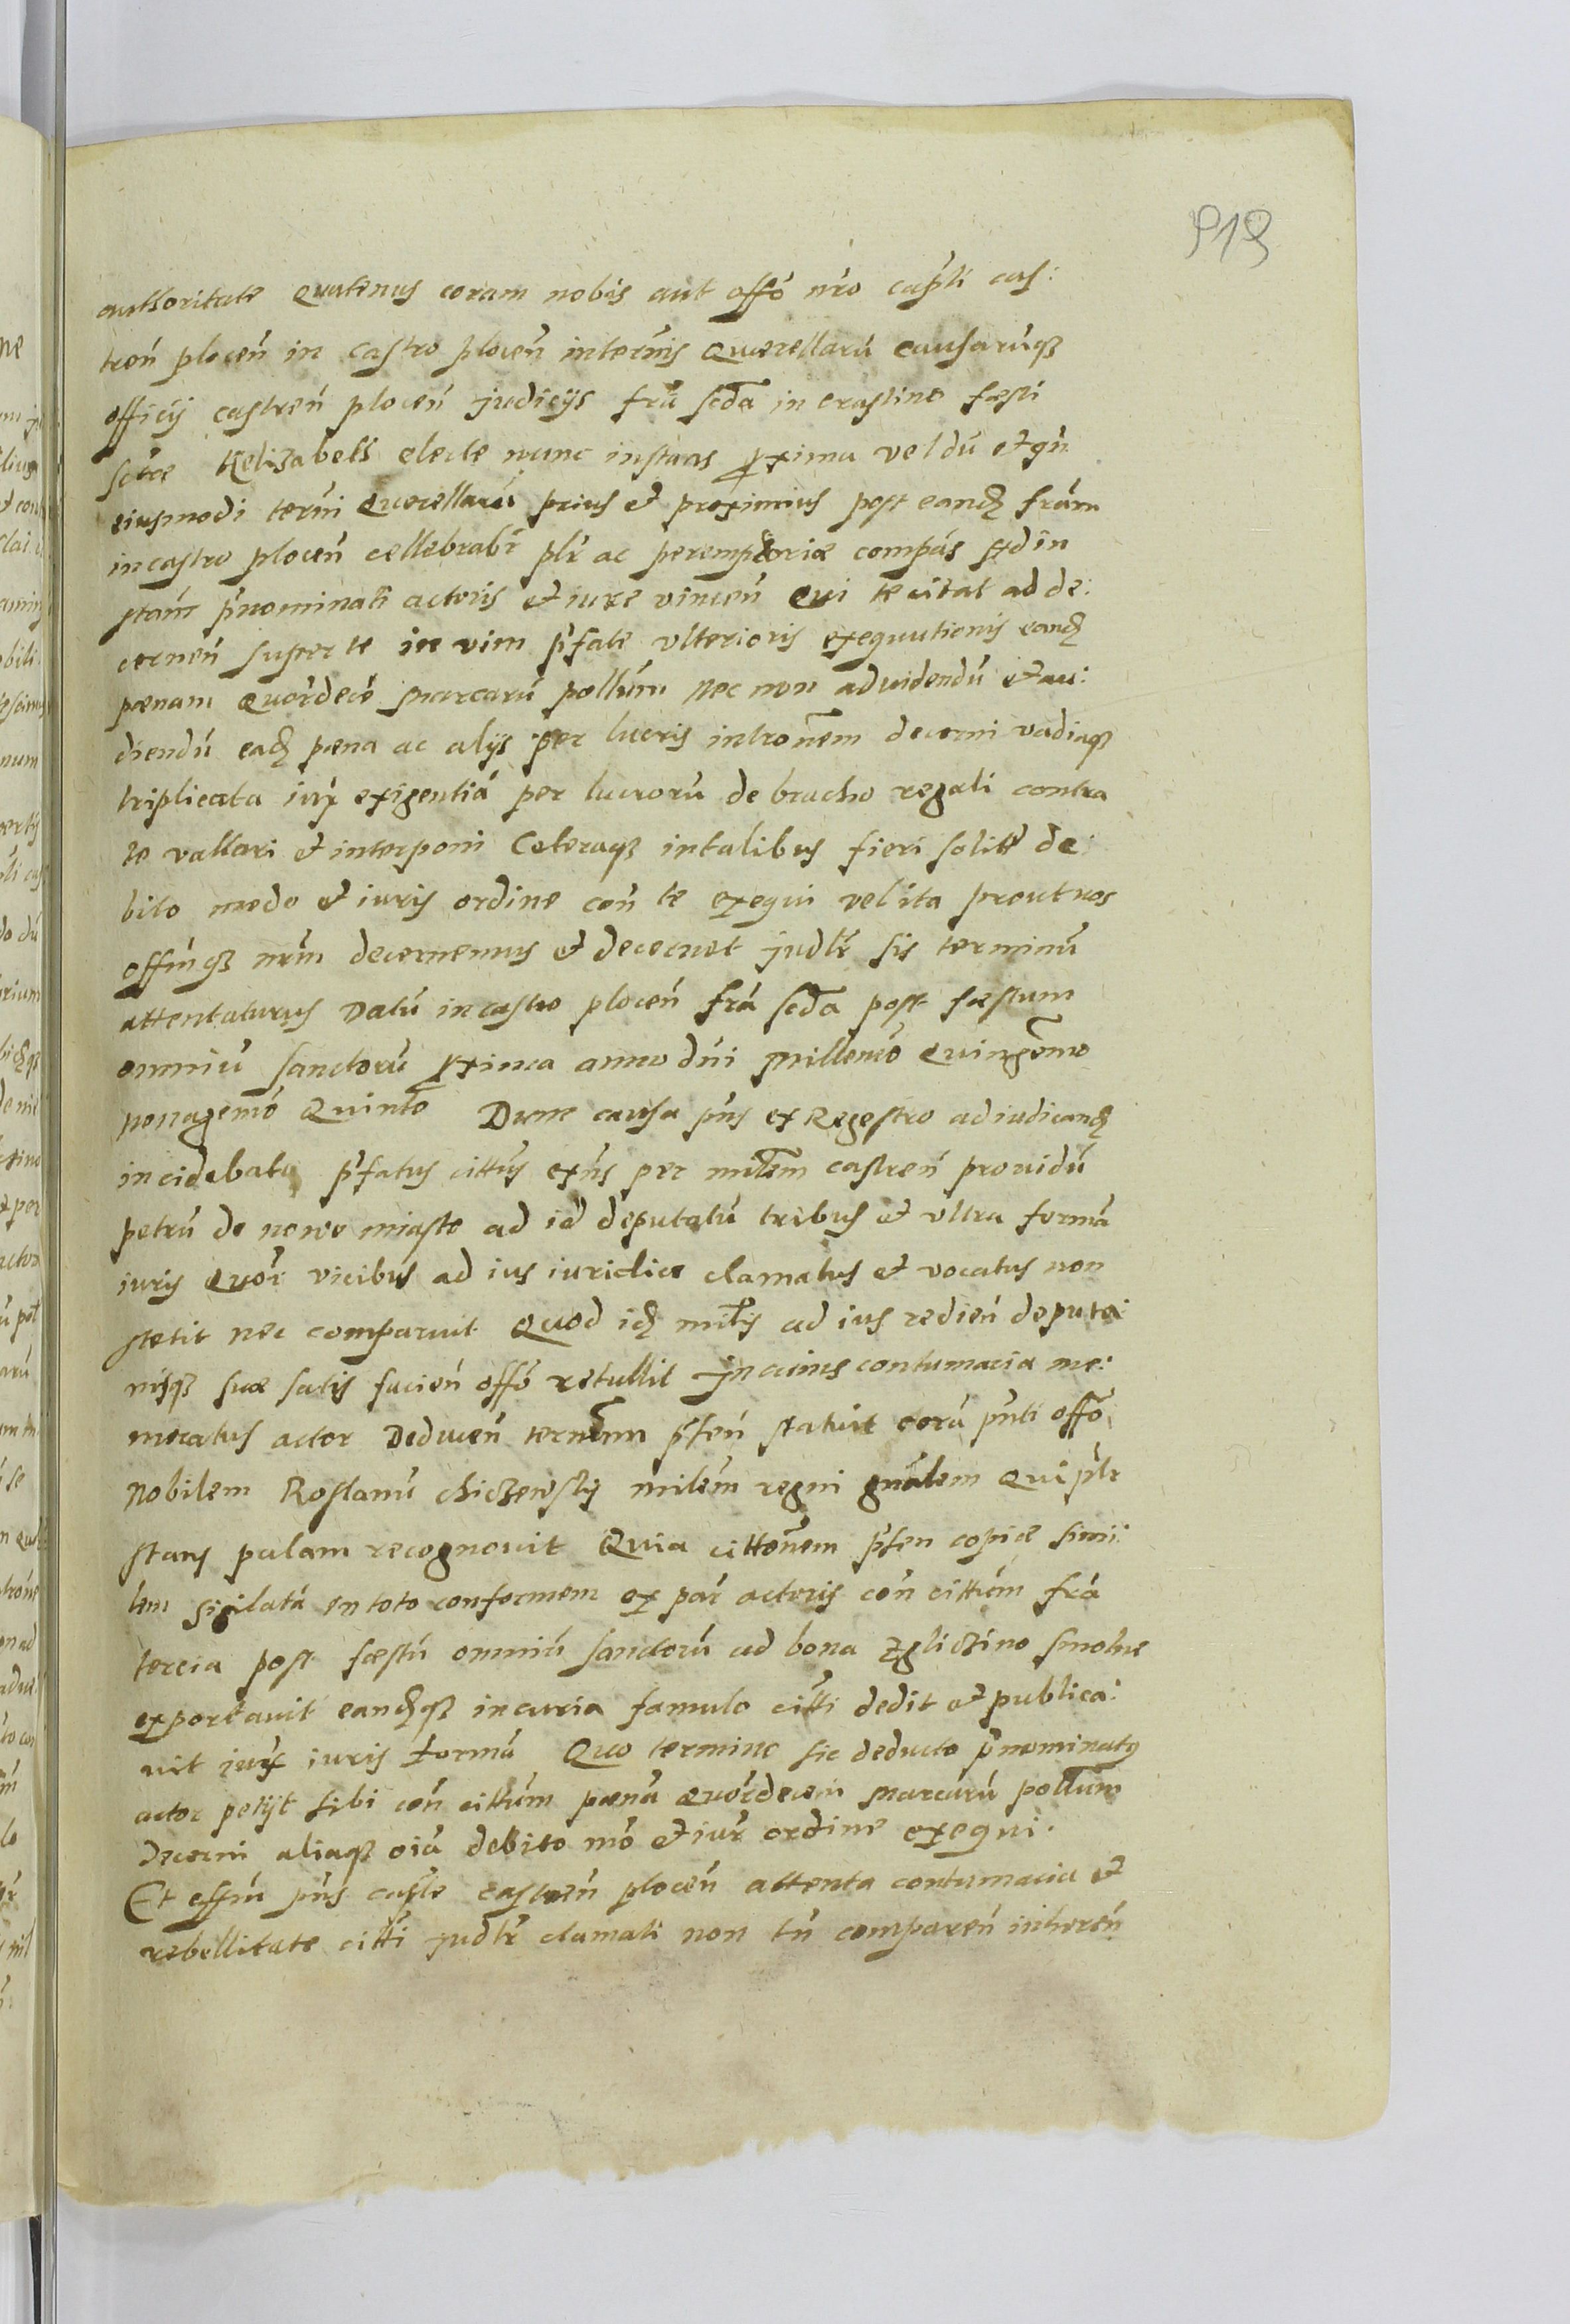 919
authoritate Quatenus coram nobis aut offō nr̄o capt̄li cas:
tren̄ plocen̄ in castro plocen̄ in term̄is Querellarū causarūqꝫ
officij castren̄ plocen̄ judicijs fr̄a scd̄a in crastino fæsti
sctæ Helizabeth electe nunc instans ꝓxima vel dū et qn̄
eiusmodi term̄i Querellarū prius et proximius post eandꝫ fr̄am
in castro plocen̄ cellebrabr̄ plr̄ ac peremptoriæ compās ad in
stam̄ pr̄nominati actoris et iure vincen̄ Qui te citat ad de:
cernen̄ super te in vim pr̄fate vlterioris exequutionis eandꝫ
pœnam Quordecē Marcarū pollum Nec non ad uidendū et au:
diendū eadꝫ pœna ac alijs per lucris intron̄em decerni vadiaqꝫ
triplicata iux̄ exigentiā per lucrorū de brachio regali contra
te vallari et interponi Ceteraqꝫ in talibus fieri solita de:
bito modo et iuris ordine con̄ te exequi vel ita prout nos
offm̄qꝫ nr̄m decernemus et decernet judlr̄ sis terminū
attentaturus Datū in castro plocen̄ fr̄a scd̄a post fæstum
omniū sanctorū ꝓxima anno dn̄i Millemō Quingēmo
nonagemō Quinto Dum causa pn̄s ex Regestro adiudicandꝫ
incidebatꝰ pr̄fatus cittūs exn̄s per milt̄em castren̄ prouidū
petrū de nowe miasto ad id deputatū tribus et vltra formā
iuris Quor̄ vicibus ad ius iuridice clamatus et vocatus non
stetit nec comparuit Quod idꝫ milt̄is ad ius redien̄ deputa:
nisqꝫ suæ satis facien̄ offō retullit In cuius contumacia me:
moratus actor Deducen̄ term̄inum pr̄sen̄ statuit corā pn̄ti offō
Nobilem Roslanū chiczewskij milt̄em regni gnalem Qui plr̄
stans palam recognouit Quia citton̄em pr̄sen copiæ simi:
lem sigilatā in toto conformem ex par̄ actoris con̄ cittūm fr̄a
tercia post fæstū omniū sanctorū ad bona Zgliczino smolne
exportauit eandꝫqꝫ in curia famulo citti dedit et publica:
uit iux̄ iuris formā Quo termino sic deducto pr̄nominatꝰ
actor petijt sibi con̄ cittūm pœnā Quordecem Marcarū pollum
decerni aliaqꝫ oīa debito mō et iur̄ ordine exequi.
Et offm̄ pn̄s captle castren̄ plocen̄ attenta contumacia et
rebellitate citti judlr̄ clamati non tn̄ comparen̄ inheren̄